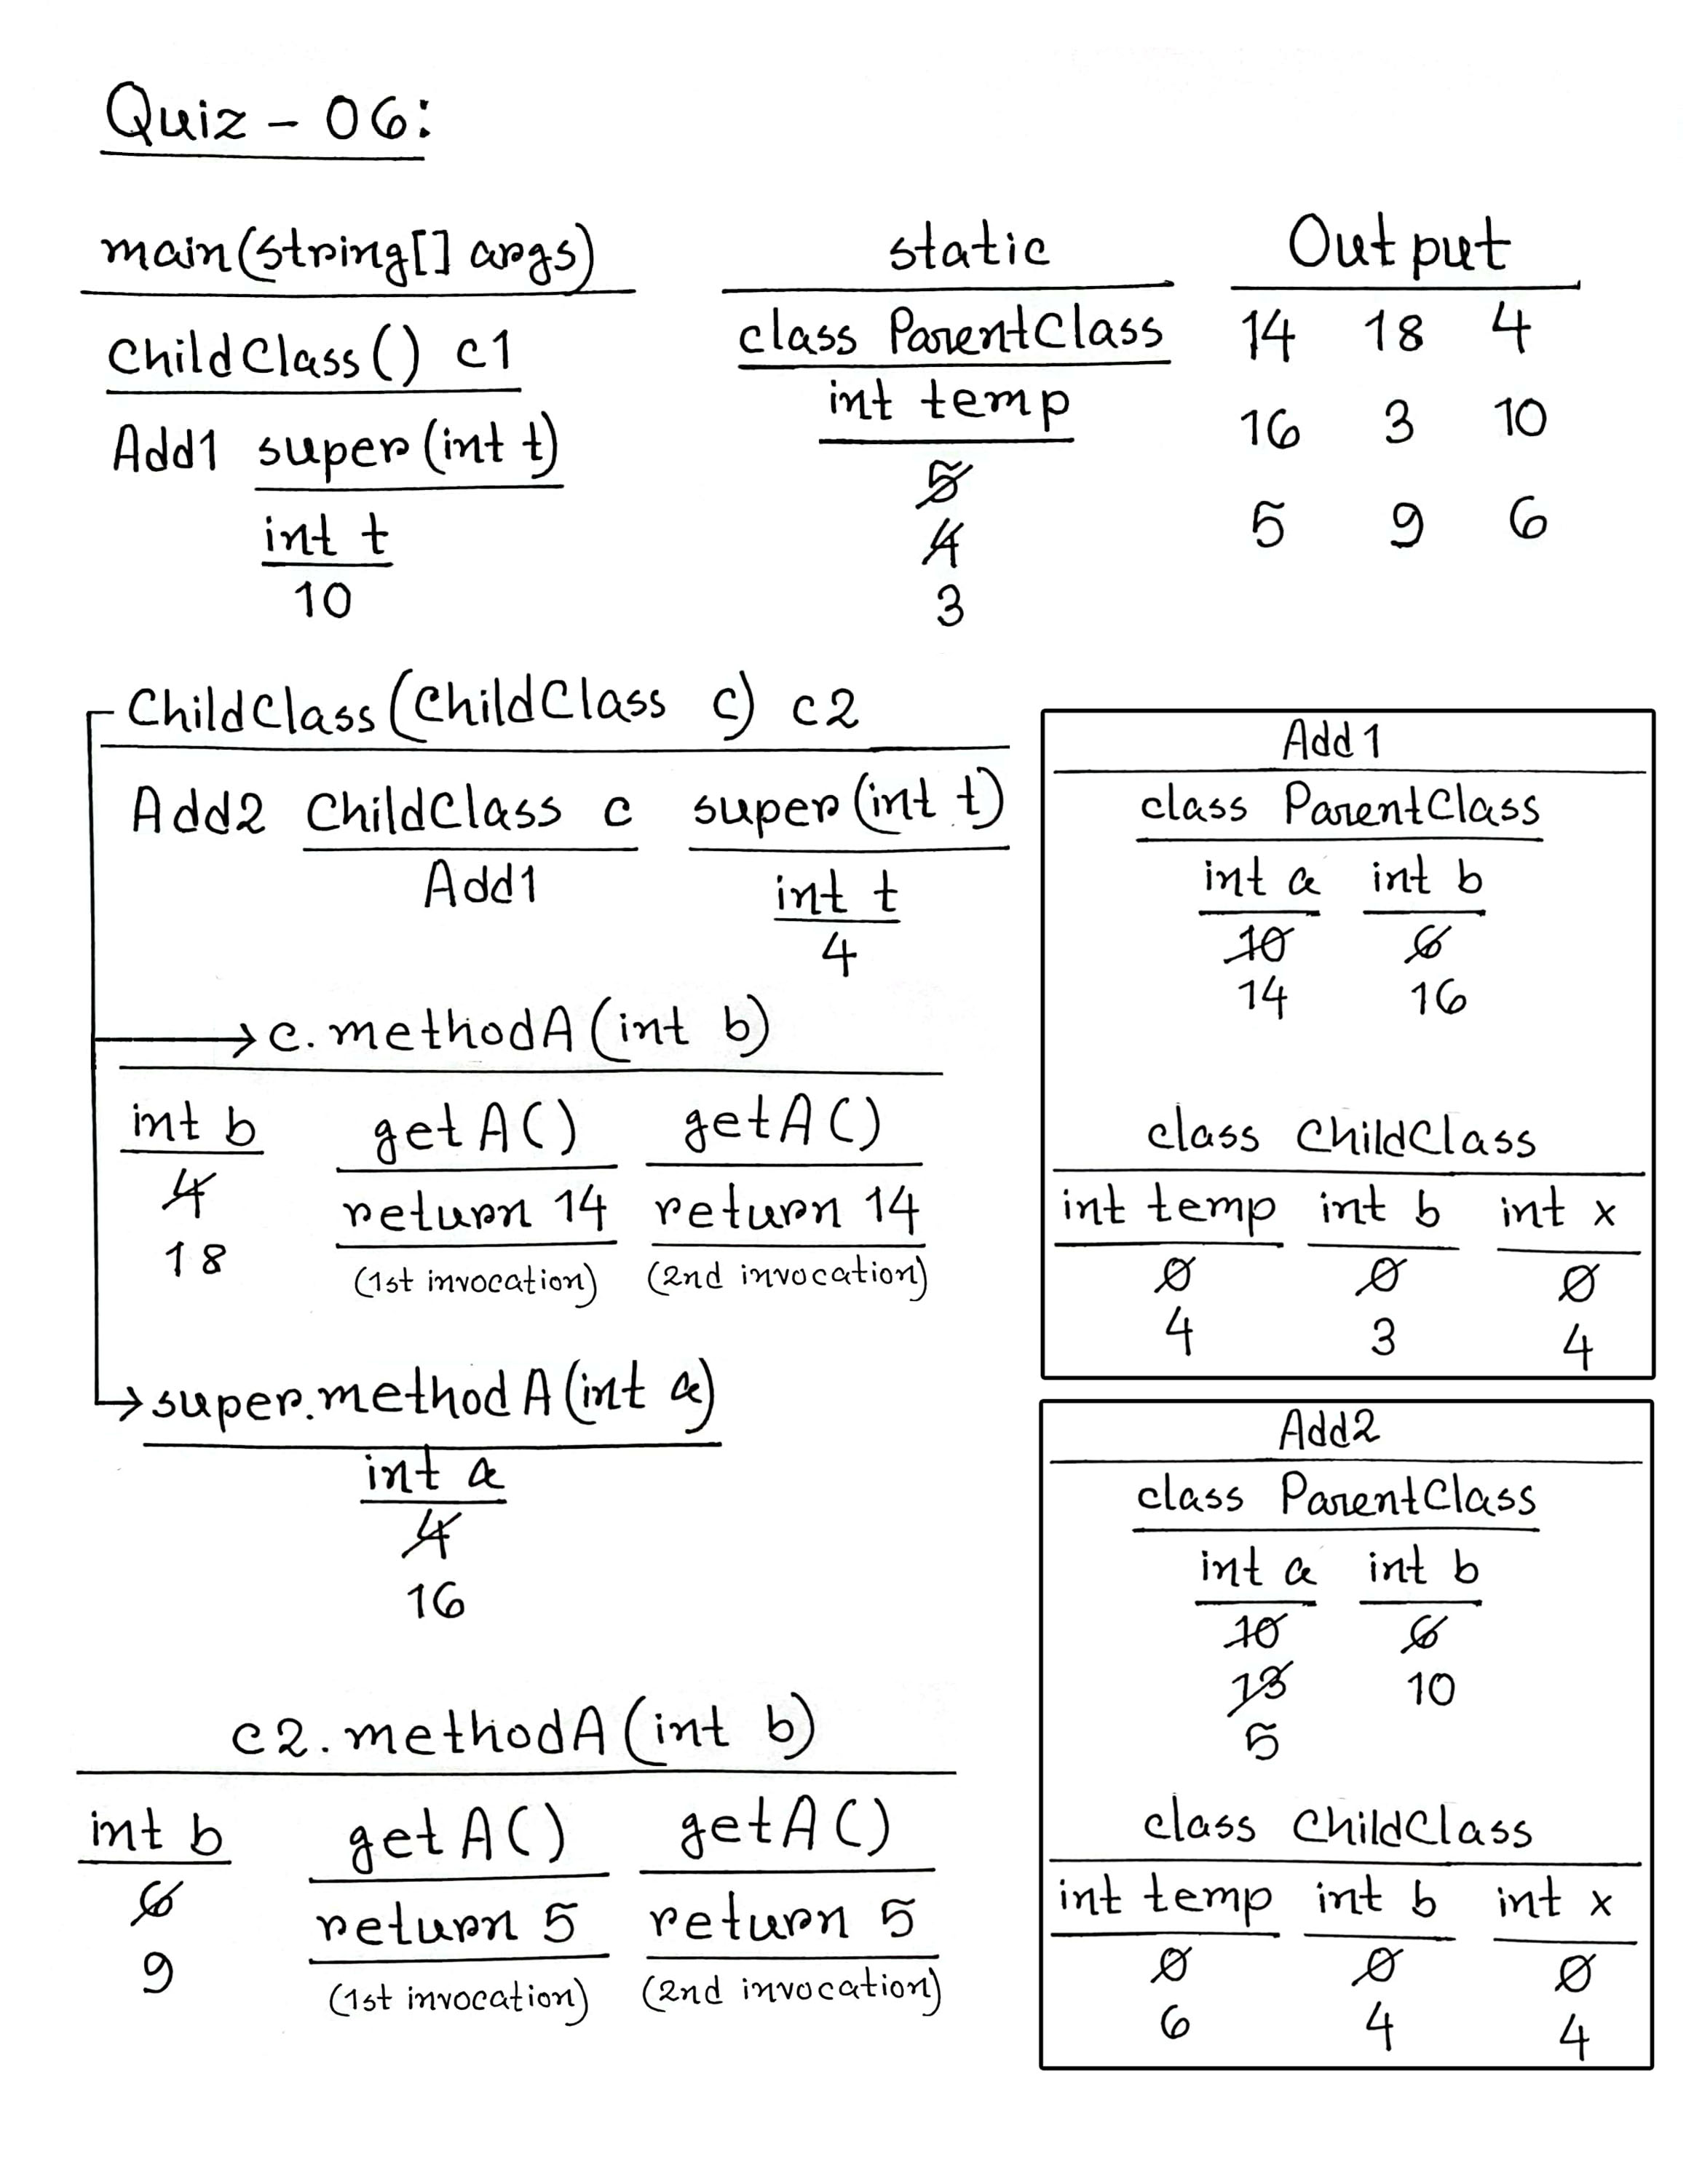 Quiz - 06:
main(String[] args)
ChildClass() c1
Add1 super(int t)
int t
10
static
class ParentClass
int temp
5
4
3
Output
14 18 4
16 3 10
5 9 6
ChildClass(ChildClass c) c2
Add2 ChildClass c super(int t)
Add1 int t
4
→c.methodA(int b)
int b getA() getA()
4 return 14 return 14
18 (1st invocation) (2nd invocation)
→super.methodA(int a)
int a
4
16
c2.methodA(int b)
int b getA() getA()
6 return 5 return 5
9 (1st invocation) (2nd invocation)
Add1
class ParentClass
int a int b
10 6
14 16
class ChildClass
int temp int b int x
0 0 0
4 3 4
Add2
class ParentClass
int a int b
10 6
13 10
5
class ChildClass
int temp int b int x
0 0 0
6 4 4